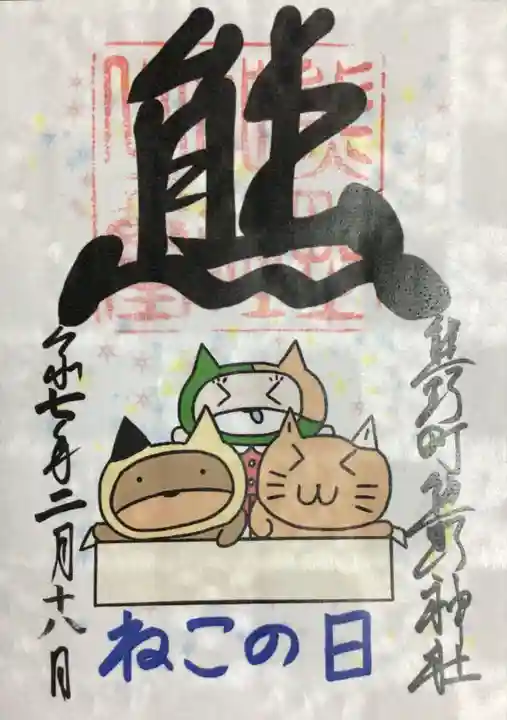 熊
熊野町熊野神社
令和七年二月十八日
ねこの日